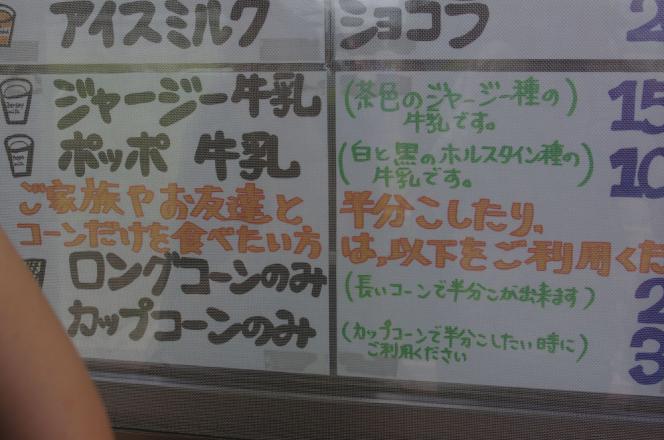 アイスミルク ショコラ 2
ジャージー牛乳 (茶色のジャージー種の 15
牛乳です。)
ポッポ 牛乳 (白と黒のホルスタイン種の 10
牛乳です。)
ご家族やお友達と 半分こしたり、
コーンだけを食べたい方 は、以下をご利用くだ
ロングコーンのみ (長いコーンで半分こが出来ます) 2
カップコーンのみ (カップコーンで半分こしたい時に 3
ご利用ください)